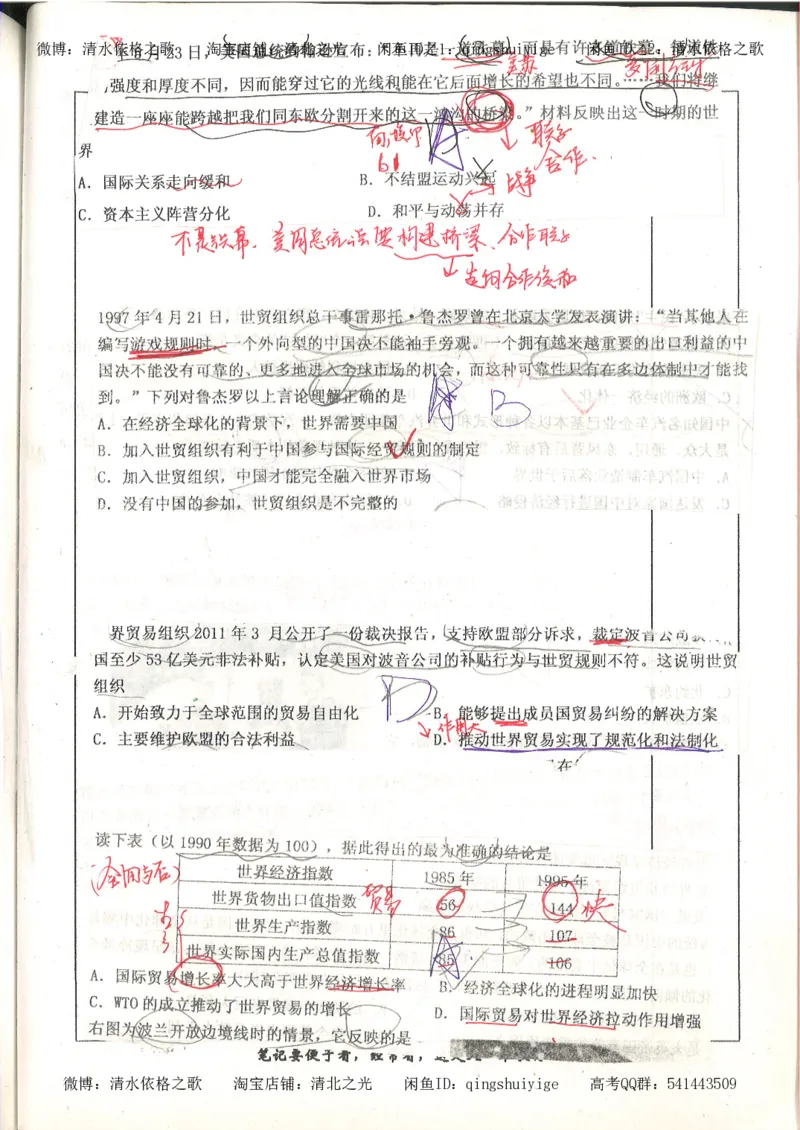 微博：清水依格之歌 淘宝店铺：清北之光 闲鱼ID1：qingshuiyige 闲鱼ID2：清水依格之歌
强度和厚度不同，因而能穿过它的光线和能在它后面增长的希望也不同。……我们将继
建造一座座能跨越把我们同东欧分割开来的这一鸿沟的桥梁。”材料反映出这一时期的世
界
A．国际关系走向缓和 B．不结盟运动兴起
C．资本主义阵营分化 D．和平与动荡并存
不是铁幕，美国总统说要构建桥梁、合作联系
↓走向合作缓和
1997年4月21日，世贸组织总干事雷那托·鲁杰罗曾在北京大学发表演讲：“当其他人在
编写游戏规则时，一个外向型的中国决不能袖手旁观。一个拥有越来越重要的出口利益的中
国决不能没有可靠的、更多地进入全球市场的机会，而这种可靠性只有在多边体制中才能找
到。”下列对鲁杰罗以上言论理解正确的是
B
A．在经济全球化的背景下，世界需要中国
B．加入世贸组织有利于中国参与国际经贸规则的制定
C．加入世贸组织，中国才能完全融入世界市场
D．没有中国的参加，世贸组织是不完整的
界贸易组织2011年3月公开了一份裁决报告，支持欧盟部分诉求，裁定波音公司
国至少53亿美元非法补贴，认定美国对波音公司的补贴行为与世贸规则不符。这说明世贸
组织
D
A．开始致力于全球范围的贸易自由化 B．能够提出成员国贸易纠纷的解决方案
C．主要维护欧盟的合法利益 D．推动世界贸易实现了规范化和法制化
读下表（以1990年数据为100），据此得出的最为准确的结论是
世界经济指数 1985年 1995年
世界货物出口值指数 贸易 56 144 快
世界生产指数 86 107
世界实际国内生产总值指数 85 106
A．国际贸易增长率大大高于世界经济增长率 B．经济全球化的进程明显加快
C．WTO的成立推动了世界贸易的增长 D．国际贸易对世界经济拉动作用增强
右图为波兰开放边境线时的情景，它反映的是
微博：清水依格之歌 淘宝店铺：清北之光 闲鱼ID：qingshuiyige 高考QQ群：541443509